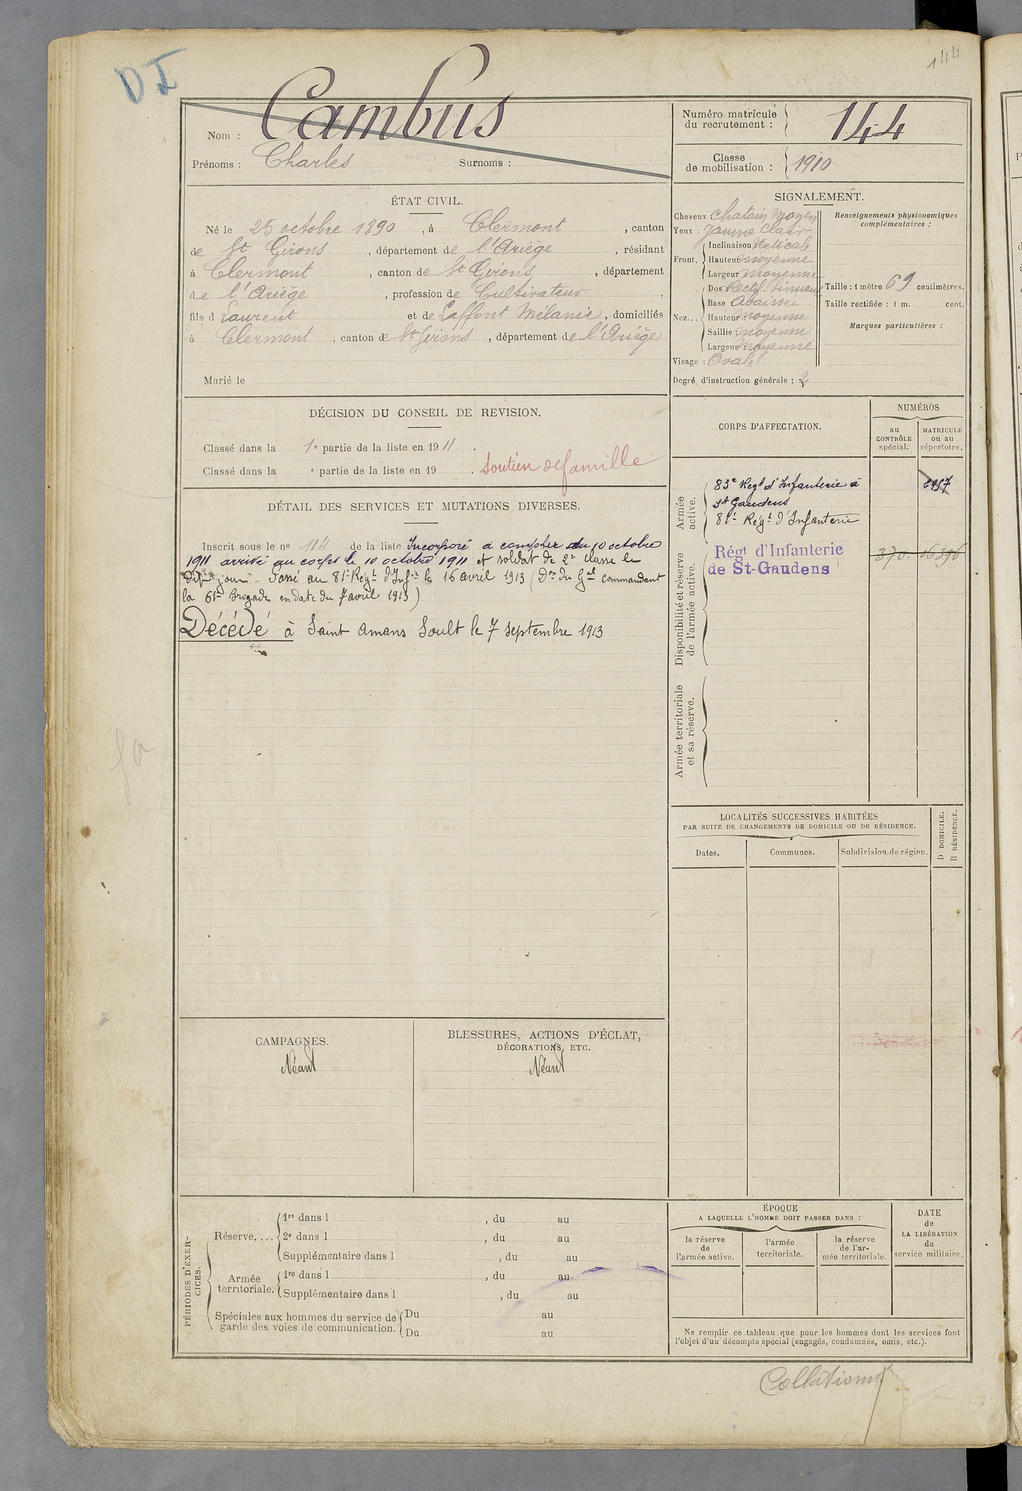 D I
144
Nom : Cambus
Prénoms : Charles Surnoms :
Numéro matricule du recrutement : 144
Classe de mobilisation : 1910
ÉTAT CIVIL.
Né le 25 octobre 1890, à Clermont, canton
de St Girons, département de l'Ariège, résidant
à Clermont, canton de St Girons, département
de l'Ariège, profession de Cultivateur,
fils d Laurent et de Laffont Mélanie, domiciliés
à Clermont, canton de St Girons, département de l'Ariège
Marié le
SIGNALEMENT.
Cheveux chatain moyen
Yeux : jaune clair
Front. Inclinaison verticale
Hauteur moyenne
Largeur moyenne
Nez... Dos Rectil. sinueux
Base Abaissée
Hauteur moyenne
Saillie moyenne
Largeur moyenne
Visage : Ovale
Degré, d'instruction générale : 2
Renseignements physionomiques
complémentaires :
Taille : 1 mètre 69 centimètres.
Taille rectifiée : 1 m. cent.
Marques particulières :
DÉCISION DU CONSEIL DE REVISION.
Classé dans la 1e partie de la liste en 1911.
Classé dans la e partie de la liste en 19 . Soutien de famille
DÉTAIL DES SERVICES ET MUTATIONS DIVERSES.
Inscrit sous le no 114 de la liste Incorporé à compter du 10 octobre
1911 arrivé au corps le 10 octobre 1911 et soldat de 2e classe le
dit jour - Passé au 81e Regt d'Infie le 16 avril 1913 (Don du Gal commandant
la 61e Brigade en date du 7 avril 1913)
Décédé à Saint Amans Soult le 7 septembre 1913
CORPS D'AFFECTATION.
NUMÉROS
AU CONTRÔLE spécial.
MATRICULE ou au répertoire.
Armée active.
83e Regt d'Infanterie à
St Gaudens
81e Régt d'Infanterie
Disponibilité et réserve de l'armée active.
Régt d'Infanterie
de St-Gaudens
Armée territoriale et sa réserve.
LOCALITÉS SUCCESSIVES HABITÉES
PAR SUITE DE CHANGEMENTS DE DOMICILE OU DE RÉSIDENCE.
D DOMICILE.
R RÉSIDENCE.
Dates. Communes. Subdivision de région.
CAMPAGNES.
Néant
BLESSURES, ACTIONS D'ÉCLAT,
DÉCORATIONS, ETC.
Néant
PÉRIODES D'EXERCICES.
Réserve.... 1re dans l , du au
2e dans l , du au
Supplémentaire dans l , du au
Armée territoriale. 1re dans l , du au
Supplémentaire dans l , du au
Spéciales aux hommes du service de
garde des voies de communication.
Du au
Du au
ÉPOQUE
A LAQUELLE L'HOMME DOIT PASSER DANS :
la réserve de l'armée active.
l'armée territoriale.
la réserve de l'armée territoriale.
DATE de LA LIBÉRATION du service militaire.
Ne remplir ce tableau que pour les hommes dont les services font
l'objet d'un décompte spécial (engagés, condamnés, omis, etc.).
Collationné